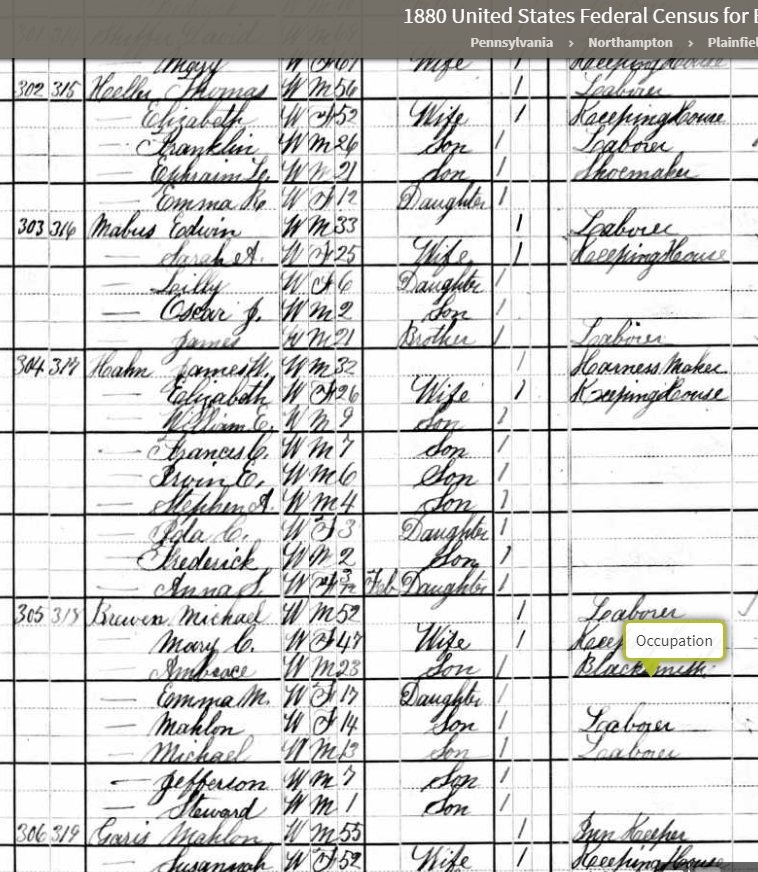 1880 United States Federal Census for
Pennsylvania > Northampton > Plainfiel
David
Mary W F 67 Wife 1 Keeping House
302 315 Heller Thomas W M 56 1 Laborer
— Elizabeth W F 52 Wife 1 Keeping House
— Franklin W M 26 Son 1 Laborer
— Ephraim W 21 Son 1 Shoemaker
— Emma R. W F 12 Daughter 1
303 316 Mabus Edwin W M 33 1 Laborer
— Sarah A. W F 25 Wife 1 Keeping House
— Lilly W F 6 Daughter 1
— Oscar J. W M 2 Son 1
— James W M 21 Brother 1 Laborer
304 317 Hahn James W. W M 32 1 Harness Maker
— Elizabeth W F 26 Wife 1 Keeping House
— William E. W M 9 Son 1
— Francis C. W M 7 Son 1
— Irvin E. W M 6 Son 1
— Stephen A. W M 4 Son 1
— Ida C. W F 3 Daughter 1
— Frederick W M 2 Son 1
— Anna S. W F Feb Daughter 1
305 318 Brewen Michael W M 52 1 Laborer
— Mary C. W F 47 Wife 1 Keep
Occupation
— Ambrose W M 23 Son 1 Blacksmith
— Emma M. W F 17 Daughter 1
— Mahlon W F 14 Son 1 Laborer
— Michael W M 13 Son 1 Laborer
— Jefferson W M 7 Son 1
— Steward W M 1 Son 1
306 319 Garis Mahlon W M 55 1 Inn Keeper
— Susannah W F 52 Wife 1 Keeping House